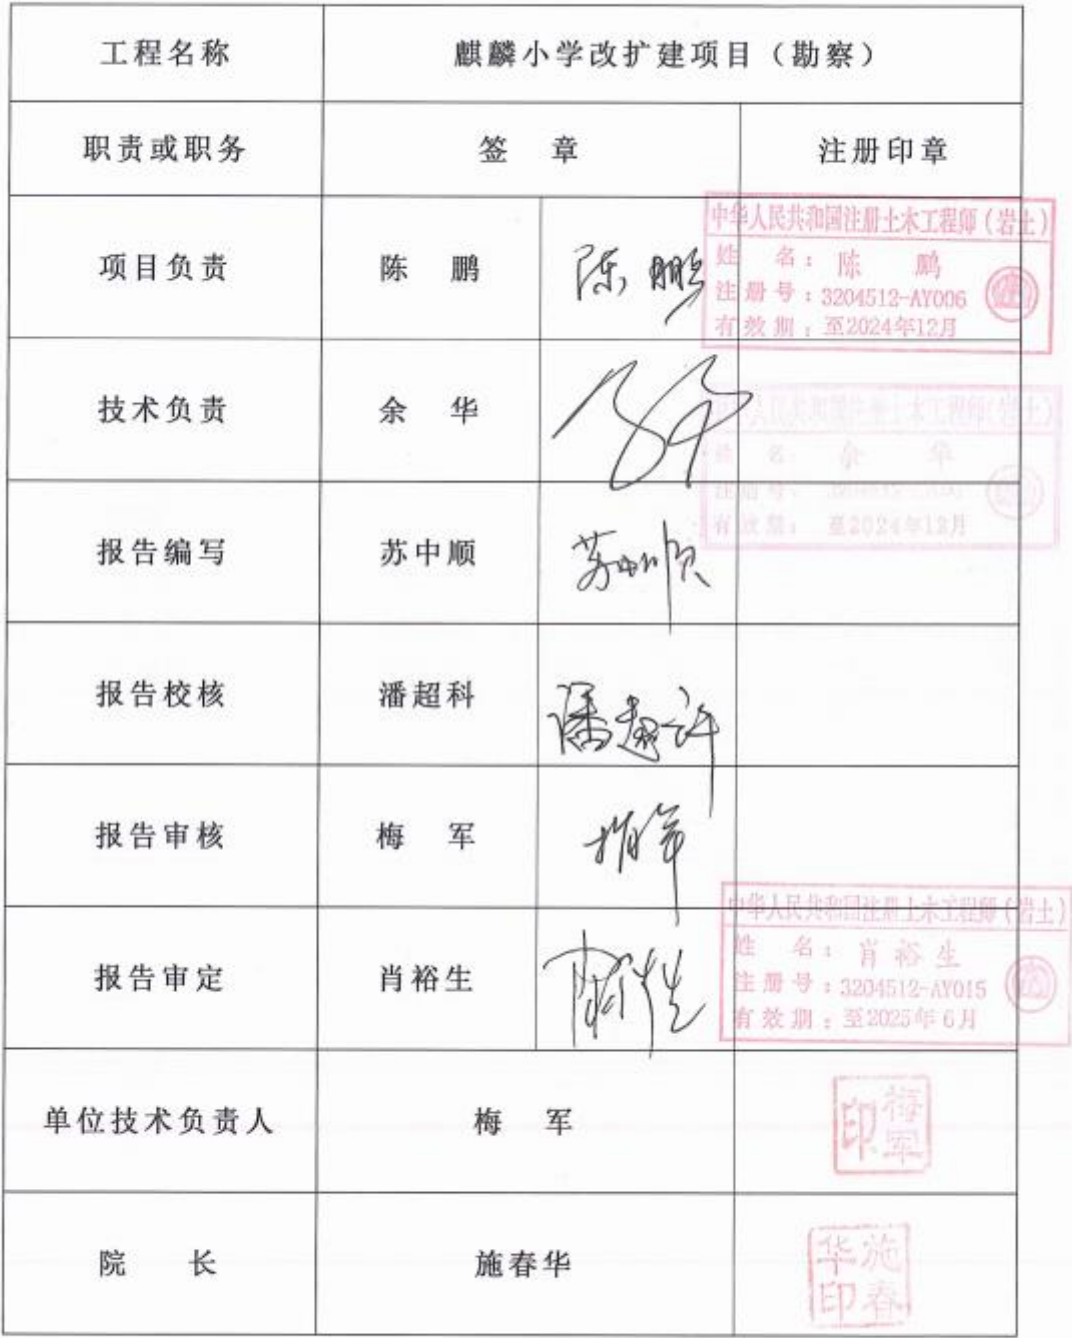 工程名称 麒麟小学改扩建项目（勘察）
职责或职务 签 章 注册印章
项目负责 陈 鹏 陈鹏
中华人民共和国注册土木工程师（岩土）
姓 名：陈 鹏
注册号：3204512-AY006
有效期：至2024年12月
技术负责 余 华
中华人民共和国注册土木工程师（岩土）
姓 名：余 华
注册号：
有效期：至2024年12月
报告编写 苏中顺 苏中顺
报告校核 潘超科 潘超科
报告审核 梅 军 梅军
报告审定 肖裕生 肖裕生
中华人民共和国注册土木工程师（岩土）
姓 名：肖裕生
注册号：3204512-AY015
有效期：至2025年6月
单位技术负责人 梅 军 梅军印
院 长 施春华 施春华印